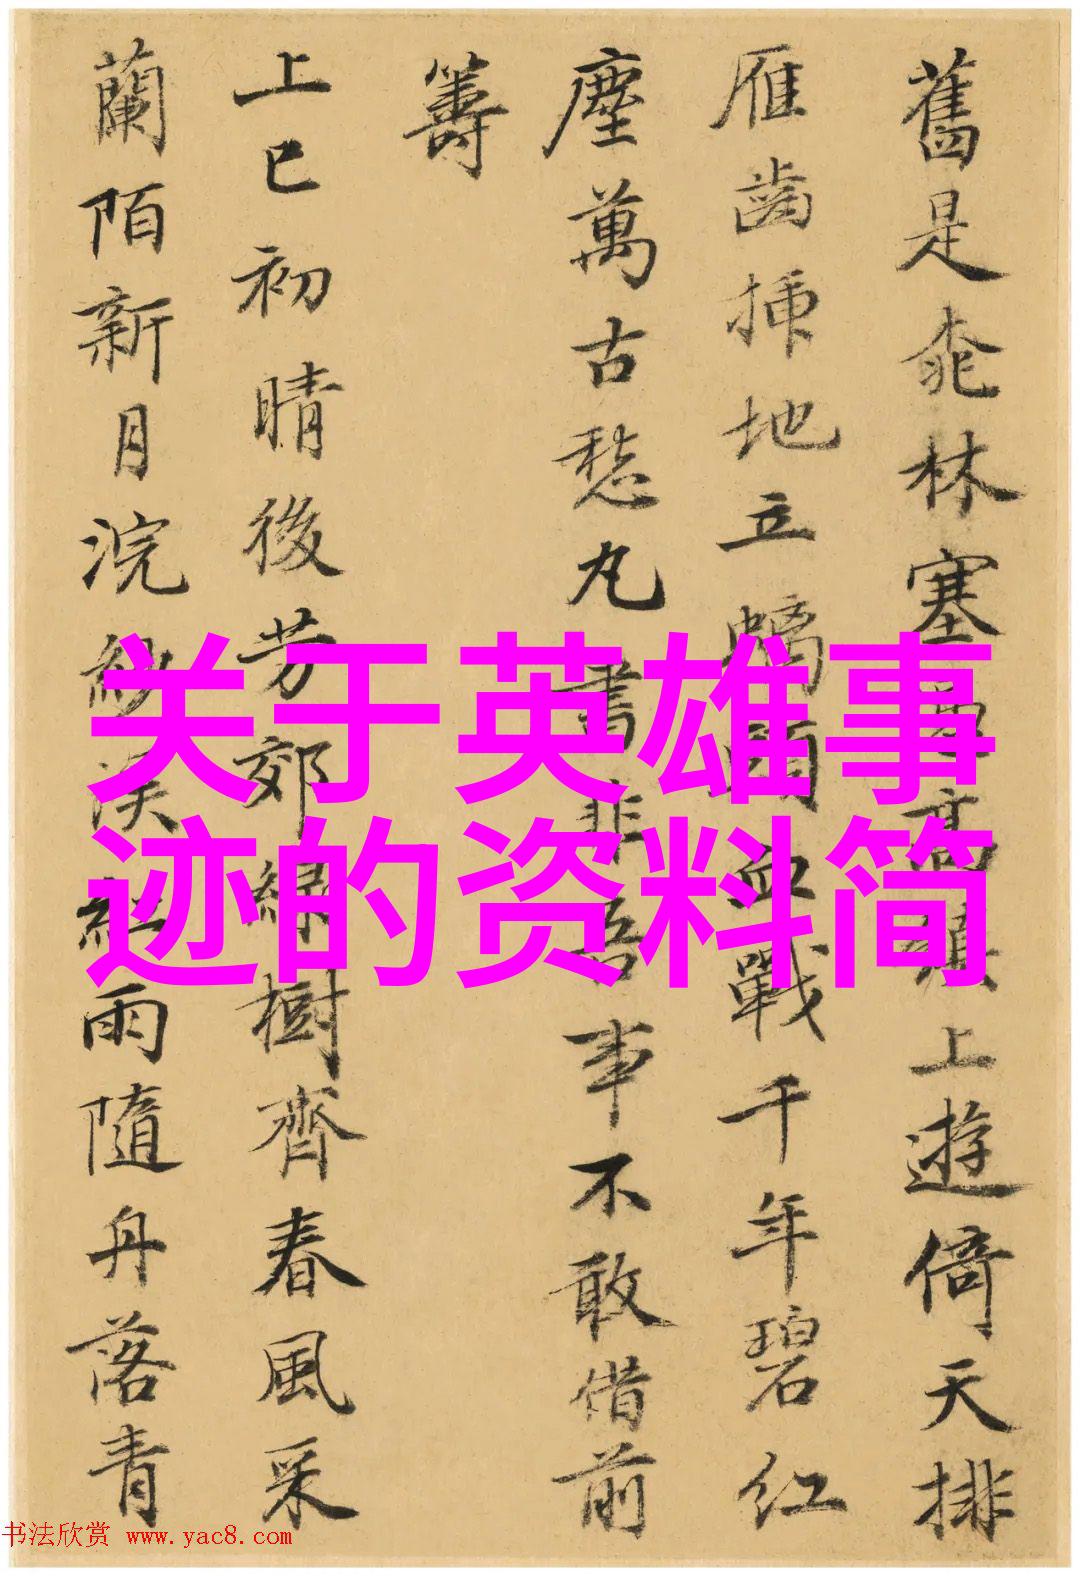 舊是桃林塞西高須上遊倚天排
雁齒插地立螭頭血戰千年碧紅
塵萬古愁丸書非吾事不敢借前
籌
上巳初晴後芳郊綠樹齊春風采
蘭陌新月浣紗溪紅雨隨舟落青
关于英雄事
迹的资料简
书法欣赏 www.yac8.com